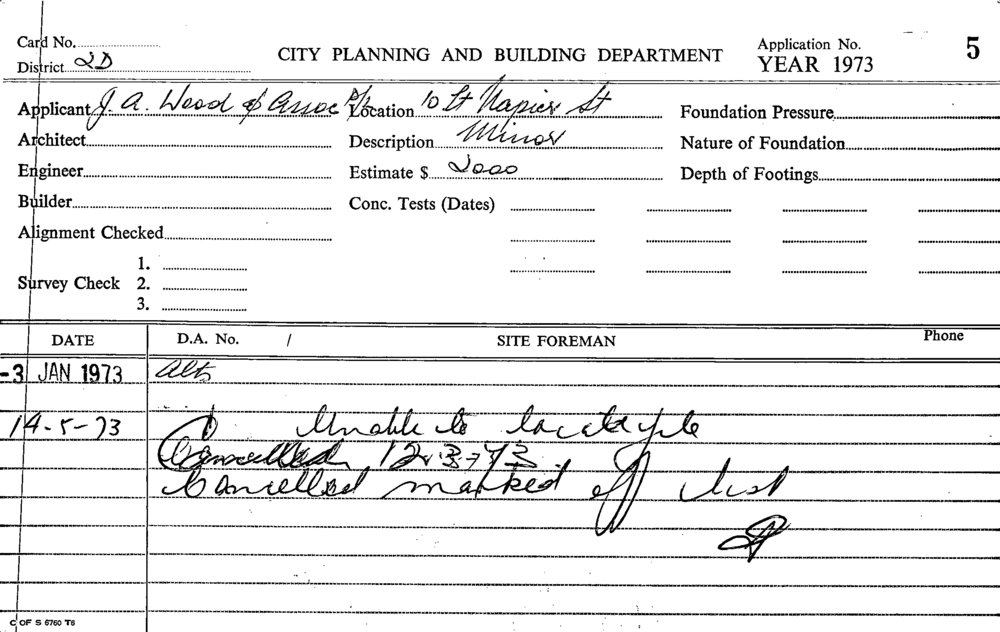 Card No.
District 2D
CITY PLANNING AND BUILDING DEPARTMENT
Application No.
YEAR 1973
5
Applicant J. A. Wood & Assoc P/L
Location 10 Lt Napier St
Foundation Pressure
Architect
Description Minor
Nature of Foundation
Engineer
Estimate $ 2000
Depth of Footings
Builder
Conc. Tests (Dates)
Alignment Checked
Survey Check
1.
2.
3.
DATE
D.A. No. /
SITE FOREMAN
Phone
-3 JAN 1973 Alts
14-5-73 Unable to locate file
Cancelled 12.3.73.
Cancelled marked off list
C OF S 6760 T6